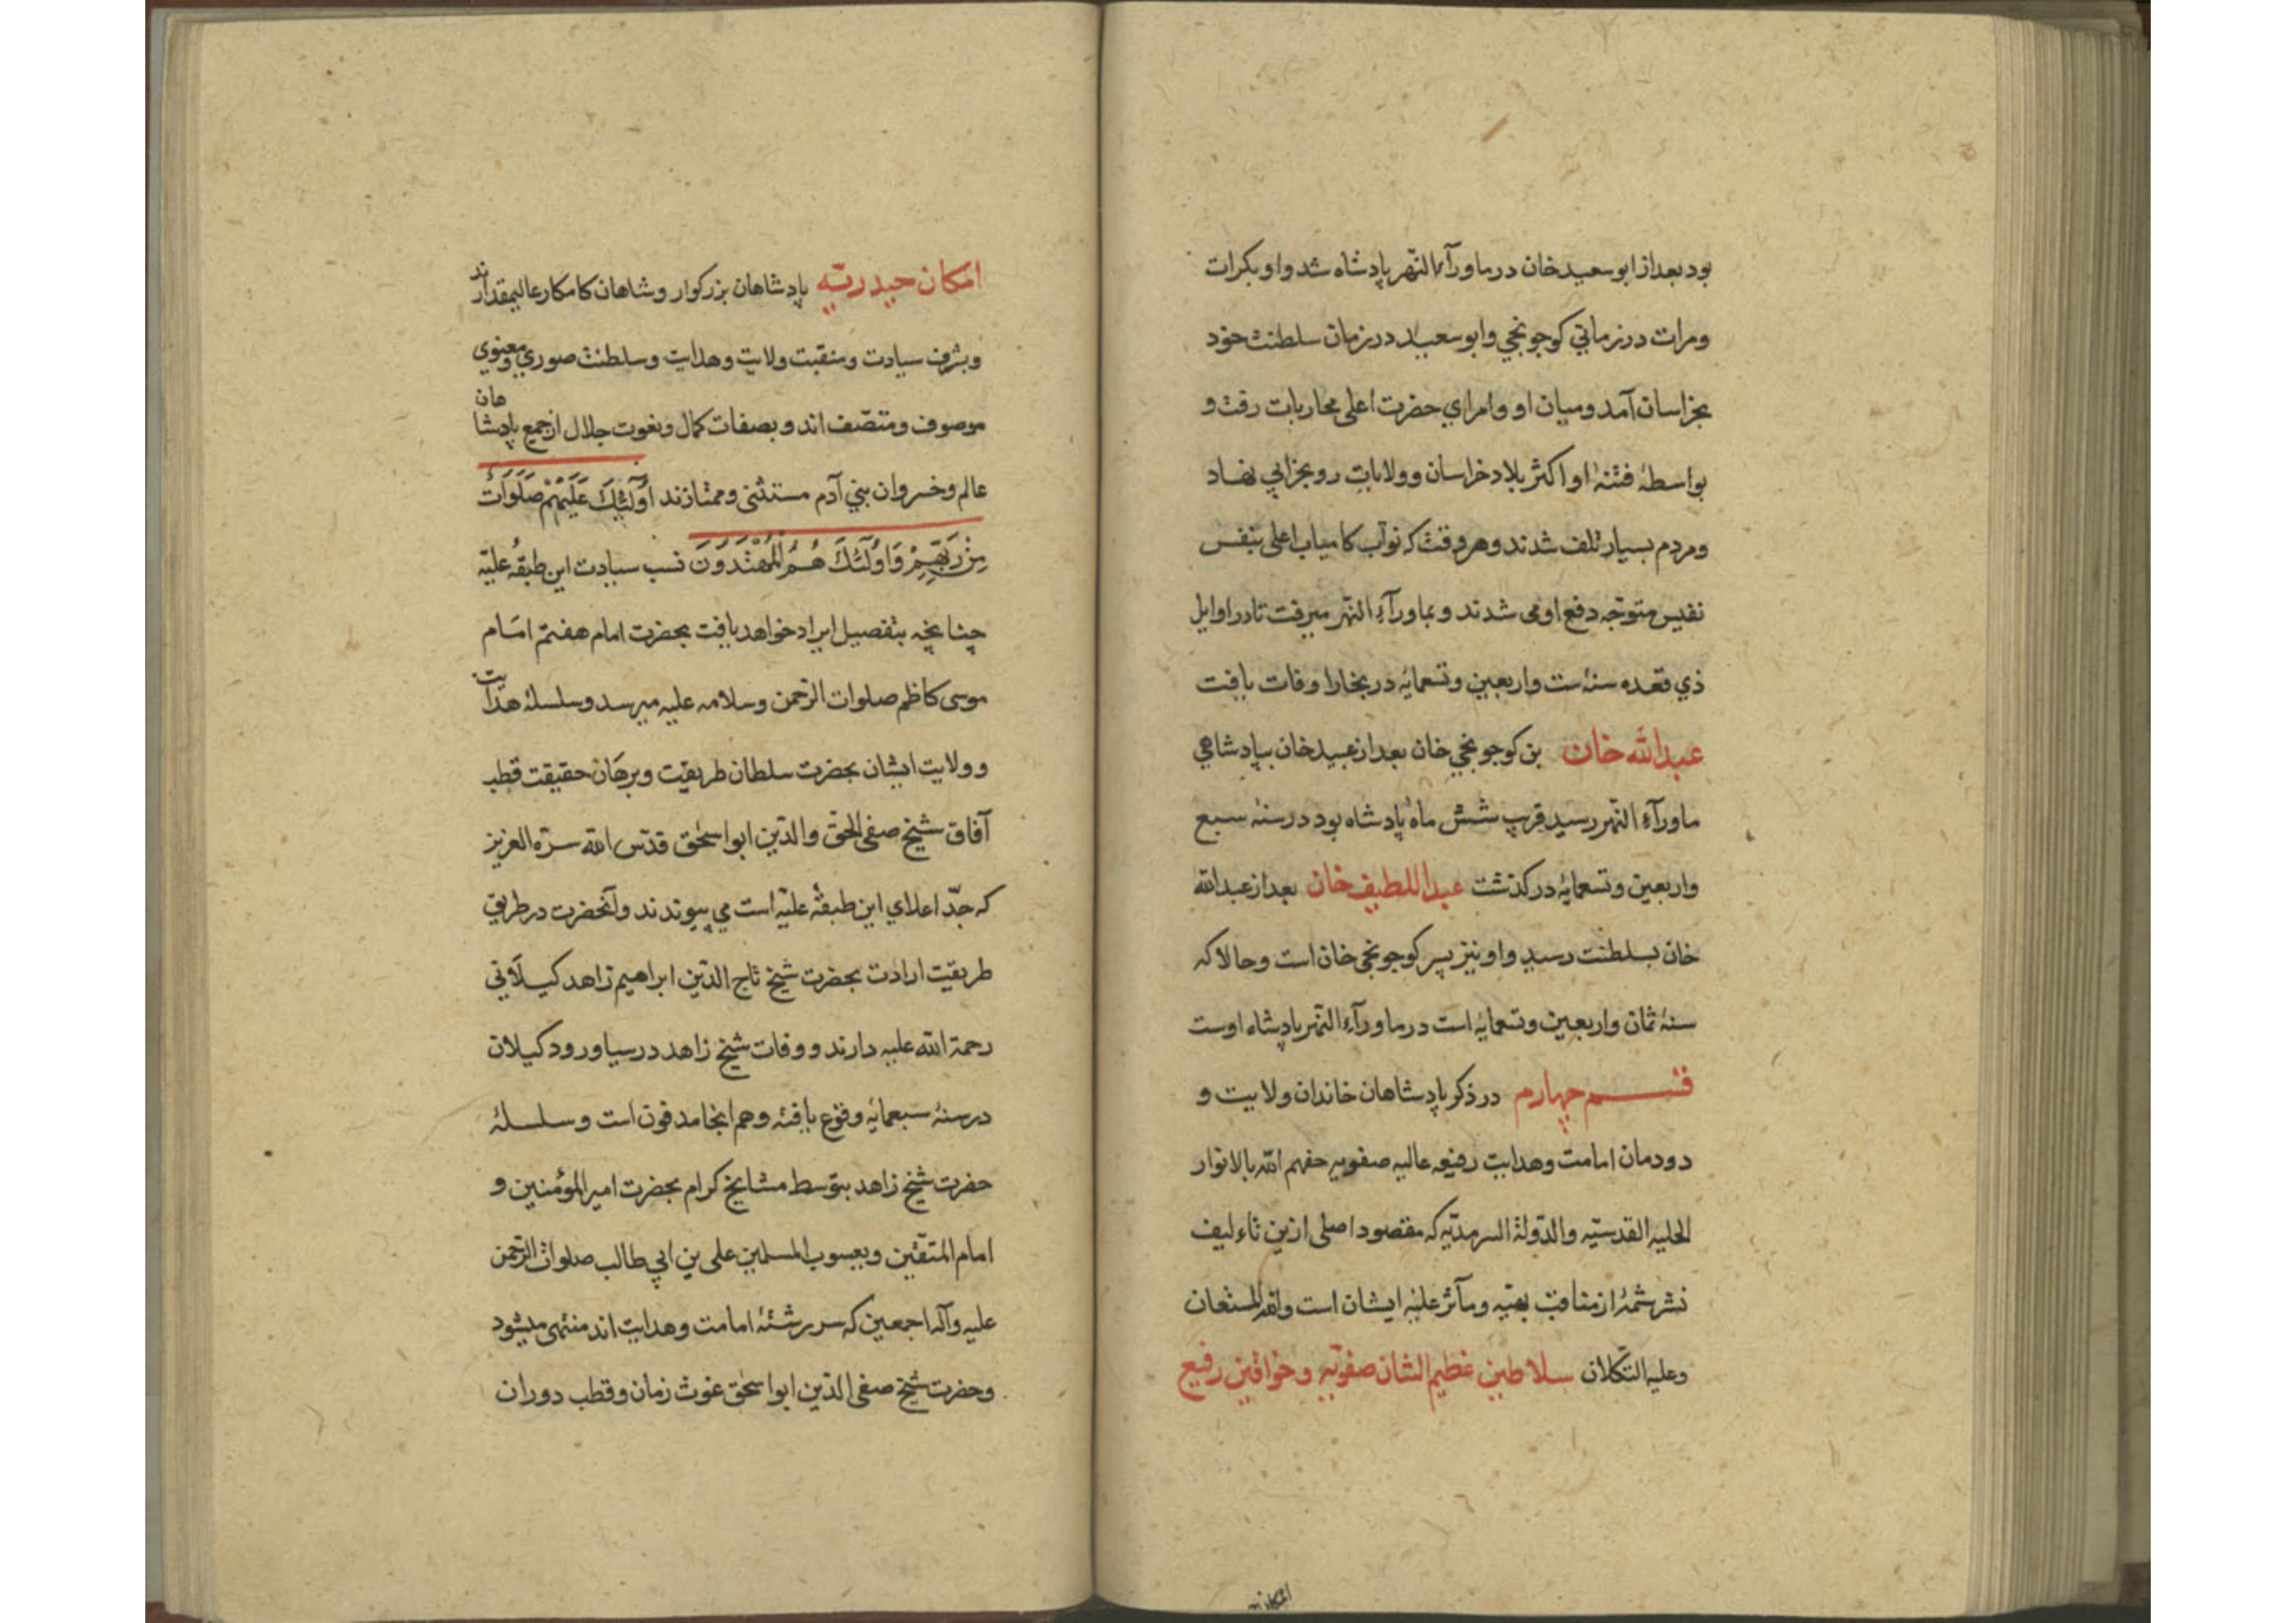 بود بعد از ابو سعید خان در ماورآء النهر پادشاه شد و او بکرات
ومرات در زمان کوجونجی وابوسعید در زمان سلطنت خود
بخراسان آمد و میان او و امرای حضرت اعلی محاربات رفت و
بواسطهٔ فتنهٔ او اکثر بلاد خراسان وولایات رو بخرابی نهاد
ومردم بسیار تلف شدند وهر وقت که نوآب کامیاب اعلی بنفس
نفیس متوجه دفع او می شدند و بماورآء النهر میرفت تا در اوایل
ذی قعده سنهٔ ست واربعین وتسعمایه در بخارا وفات یافت
عبدالله خان بن کوجونجی خان بعد از عبید خان بپادشاهی
ماورآء النهر رسید قرب شش ماه پادشاه بود در سنهٔ سبع
واربعین وتسعمایه درکذشت عبداللطیف خان بعد از عبدالله
خان بسلطنت رسید واو نیز پسر کوجونجی خان است وحالا که
سنهٔ ثمان واربعین وتسعمایه است در ماورآء النهر پادشاه اوست
قسم چهارم در ذکر پادشاهان خاندان ولایت و
دودمان امامت وهدایت رفیعه عالیه صفویه حفهم الله بالانوار
الجلیه القدسیّه والدّولة السرمدیّه که مقصود اصلی ازین تاءلیف
نشر شمهٔ از مناقب بهیّه ومآثر علیّه ایشان است والله المستعان
وعلیه التکلان سلاطین عظیم الشان صفویّه وخواقین رفیع
امکان
امکان حیدریّه پادشاهان بزرکوار وشاهان کامکار عالیمقدارند
وبشرف سیادت ومنقبت ولایت وهدایت وسلطنت صوری ومعنوی
موصوف ومتصّف اند وبصفات کمال ونعوت جلال از جمیع پادشاهان
عالم وخسروان بنی آدم مستثنی وممتازند اُولَٰئِكَ عَلَيْهِمْ صَلَوَاتٌ
مِنْ رَبِّهِمْ وَاُولَٰئِكَ هُمُ الْمُهْتَدُونَ نسب سیادت این طبقهٔ علیّه
چنانچه بتفصیل ایراد خواهد یافت بحضرت امام هفتم امام
موسی کاظم صلوات الرّحمن وسلامه علیه میرسد وسلسلهٔ هدایت
وولایت ایشان بحضرت سلطان طریقت وبرهان حقیقت قطب
آفاق شیخ صفی الحق والدّین ابو اسحٰق قدّس الله سرّه العزیز
که جدّ اعلای این طبقهٔ علیّه است می پیوندند وآنحضرت در طریق
طریقت ارادت بحضرت شیخ تاج الدّین ابراهیم زاهد کیلانی
رحمة الله علیه دارند ووفات شیخ زاهد در سیاورود کیلان
در سنهٔ سبعمایه وقوع یافته وهم انجا مدفون است وسلسلهٔ
حضرت شیخ زاهد بتوسط مشایخ کرام بحضرت امیر المؤمنین و
امام المتقّین ویعسوب المسلمین علی بن ابی طالب صلوات الرّحمن
علیه وآله اجمعین که سر رشتهٔ امامت وهدایت اند منتهی میشود
وحضرت شیخ صفی الدّین ابو اسحٰق غوث زمان وقطب دوران